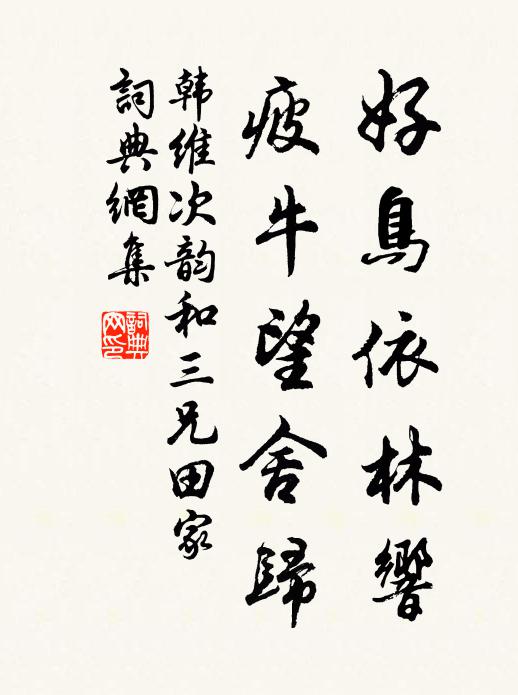 好鳥依林響
疲牛望舍歸
韩维次韵和三兄田家
詞典網集
詞典网印